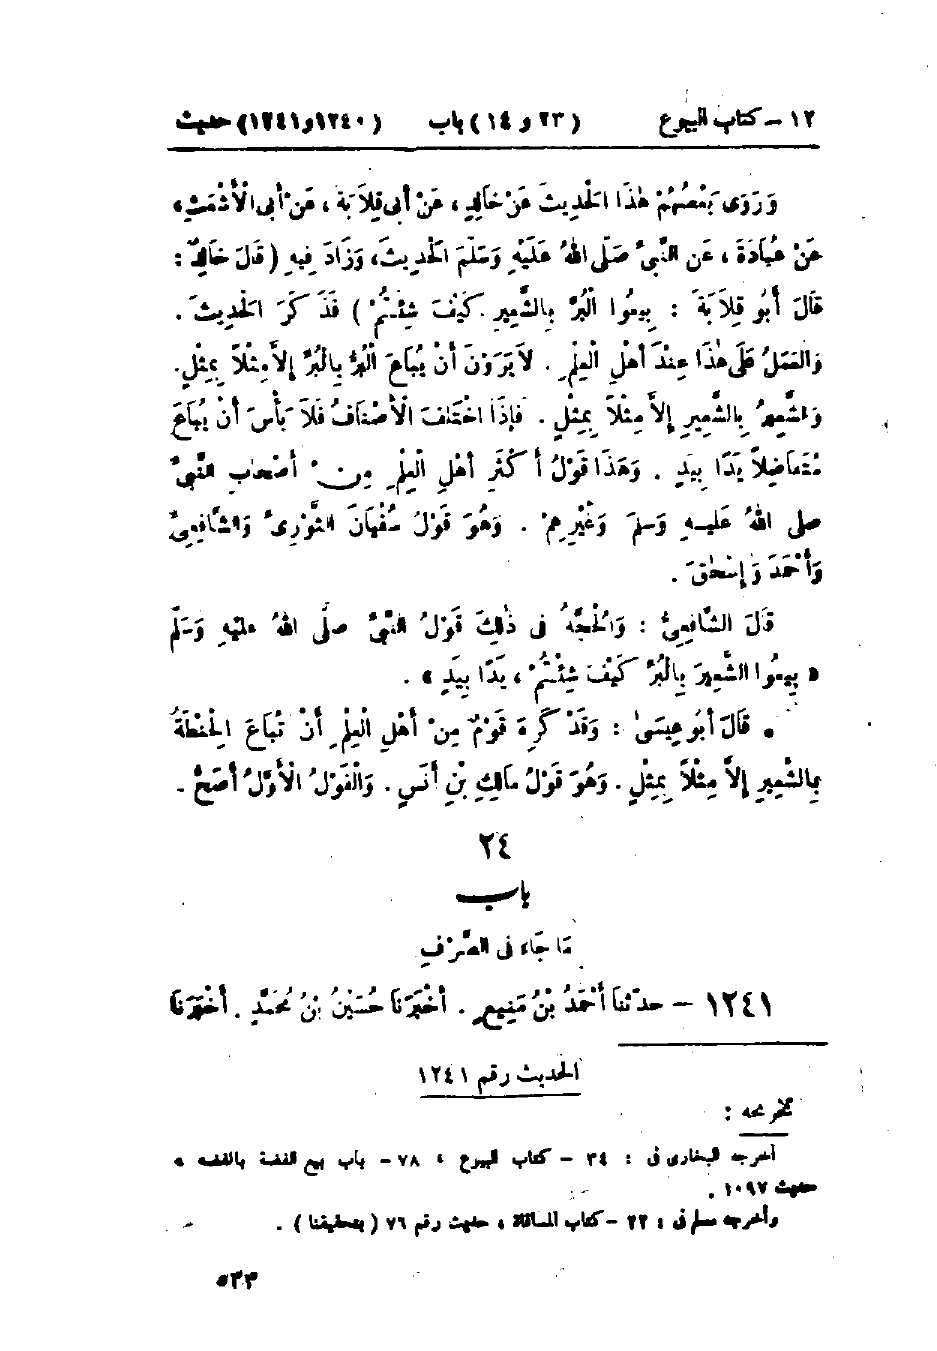 ١٢ – كتاب البيوع (٢٣ و ١٤) باب (١٢٤٠ و ١٢٤١) حديث
وَرَوَى بَعْضُهُمْ هٰذَا الْحَدِيثَ عَنْ خَالِدٍ ، عَنْ أَبِى قِلَابَةَ ، عَنْ أَبِى الْأَشْعَثِ ،
عَنْ عُبَادَةَ ، عَنِ النَّبِىِّ صَلَّى اللهُ عَلَيْهِ وَسَلَّمَ الْحَدِيثَ، وَزَادَ فِيهِ ( قَالَ خَالِدٌ :
قَالَ أَبُو قِلَابَةَ : بِيعُوا الْبُرَّ بِالشَّعِيرِ كَيْفَ شِئْتُمْ ) فَذَكَرَ الْحَدِيثَ .
وَالْعَمَلُ عَلَى هٰذَا عِنْدَ أَهْلِ الْعِلْمِ . لَا يَرَوْنَ أَنْ يُبَاعَ الْبُرُّ بِالْبُرِّ إِلاَّ مِثْلاً بِمِثْلٍ.
وَالشَّعِيرُ بِالشَّعِيرِ إِلاَّ مِثْلاً بِمِثْلٍ . فَإِذَا اخْتَلَفَ الْأَصْنَافُ فَلَا بَأْسَ أَنْ يُبَاعَ
مُتَفَاضِلاً يَدًا بِيَدٍ . وَهَذَا قَوْلُ أَكْثَرِ أَهْلِ الْعِلْمِ مِنْ أَصْحَابِ النَّبِىِّ
صلى اللهُ عَلَيـهِ وَسَلمَ وَغَيْرِهِمْ . وَهُوَ قَوْلُ سُفْيَانَ الثَّوْرِىِّ وَالشَّافِعِىِّ
وَأَحْمَدَ وَإِسْحٰقَ .
قَالَ الشَّافِعِىُّ : وَالْحُجَّةُ فِى ذٰلِكَ قَوْلُ النَّبِىِّ صلَّى اللهُ عليْهِ وَسَلَّم
« بِيعُوا الشَّعِيرَ بِالْبُرِّ كَيْفَ شِئْتُمْ ، يَدًا بِيَدٍ » .
• قَالَ أَبُو عِيسَىٰ : وَقَدْ كَرِهَ قَوْمٌ مِنْ أَهْلِ الْعِلْمِ أَنْ تُبَاعَ الْحِنْطَةُ
بِالشَّعِيرِ إِلاَّ مِثْلاً بِمِثْلٍ . وَهُوَ قَوْلُ مَالِكِ بْنِ أَنَسٍ . وَالْقَوْلُ الْأَوَّلُ أَصَحُّ .
٢٤
باب
مَا جَاءَ فى الصَّرْفِ
١٢٤١ – حدّثنا أَحْمَدُ بْنُ مَنِيعٍ . أَخْبَرَنَا حُسَيْنُ بْنُ مُحَمَّدٍ . أَخْبَرَنَا
الحديث رقم ١٢٤١
تخريجه :
أخرجه البخارى فى : ٣٤ – كتاب البيوع ، ٧٨ – باب بيع الفضة بالفضة ،
حديث ١٠٩٧ .
وأخرجه مسلم فى : ٢٢ – كتاب المساقاة ، حديث رقم ٧٦ ( بتحقيقنا ) .
٥٣٣